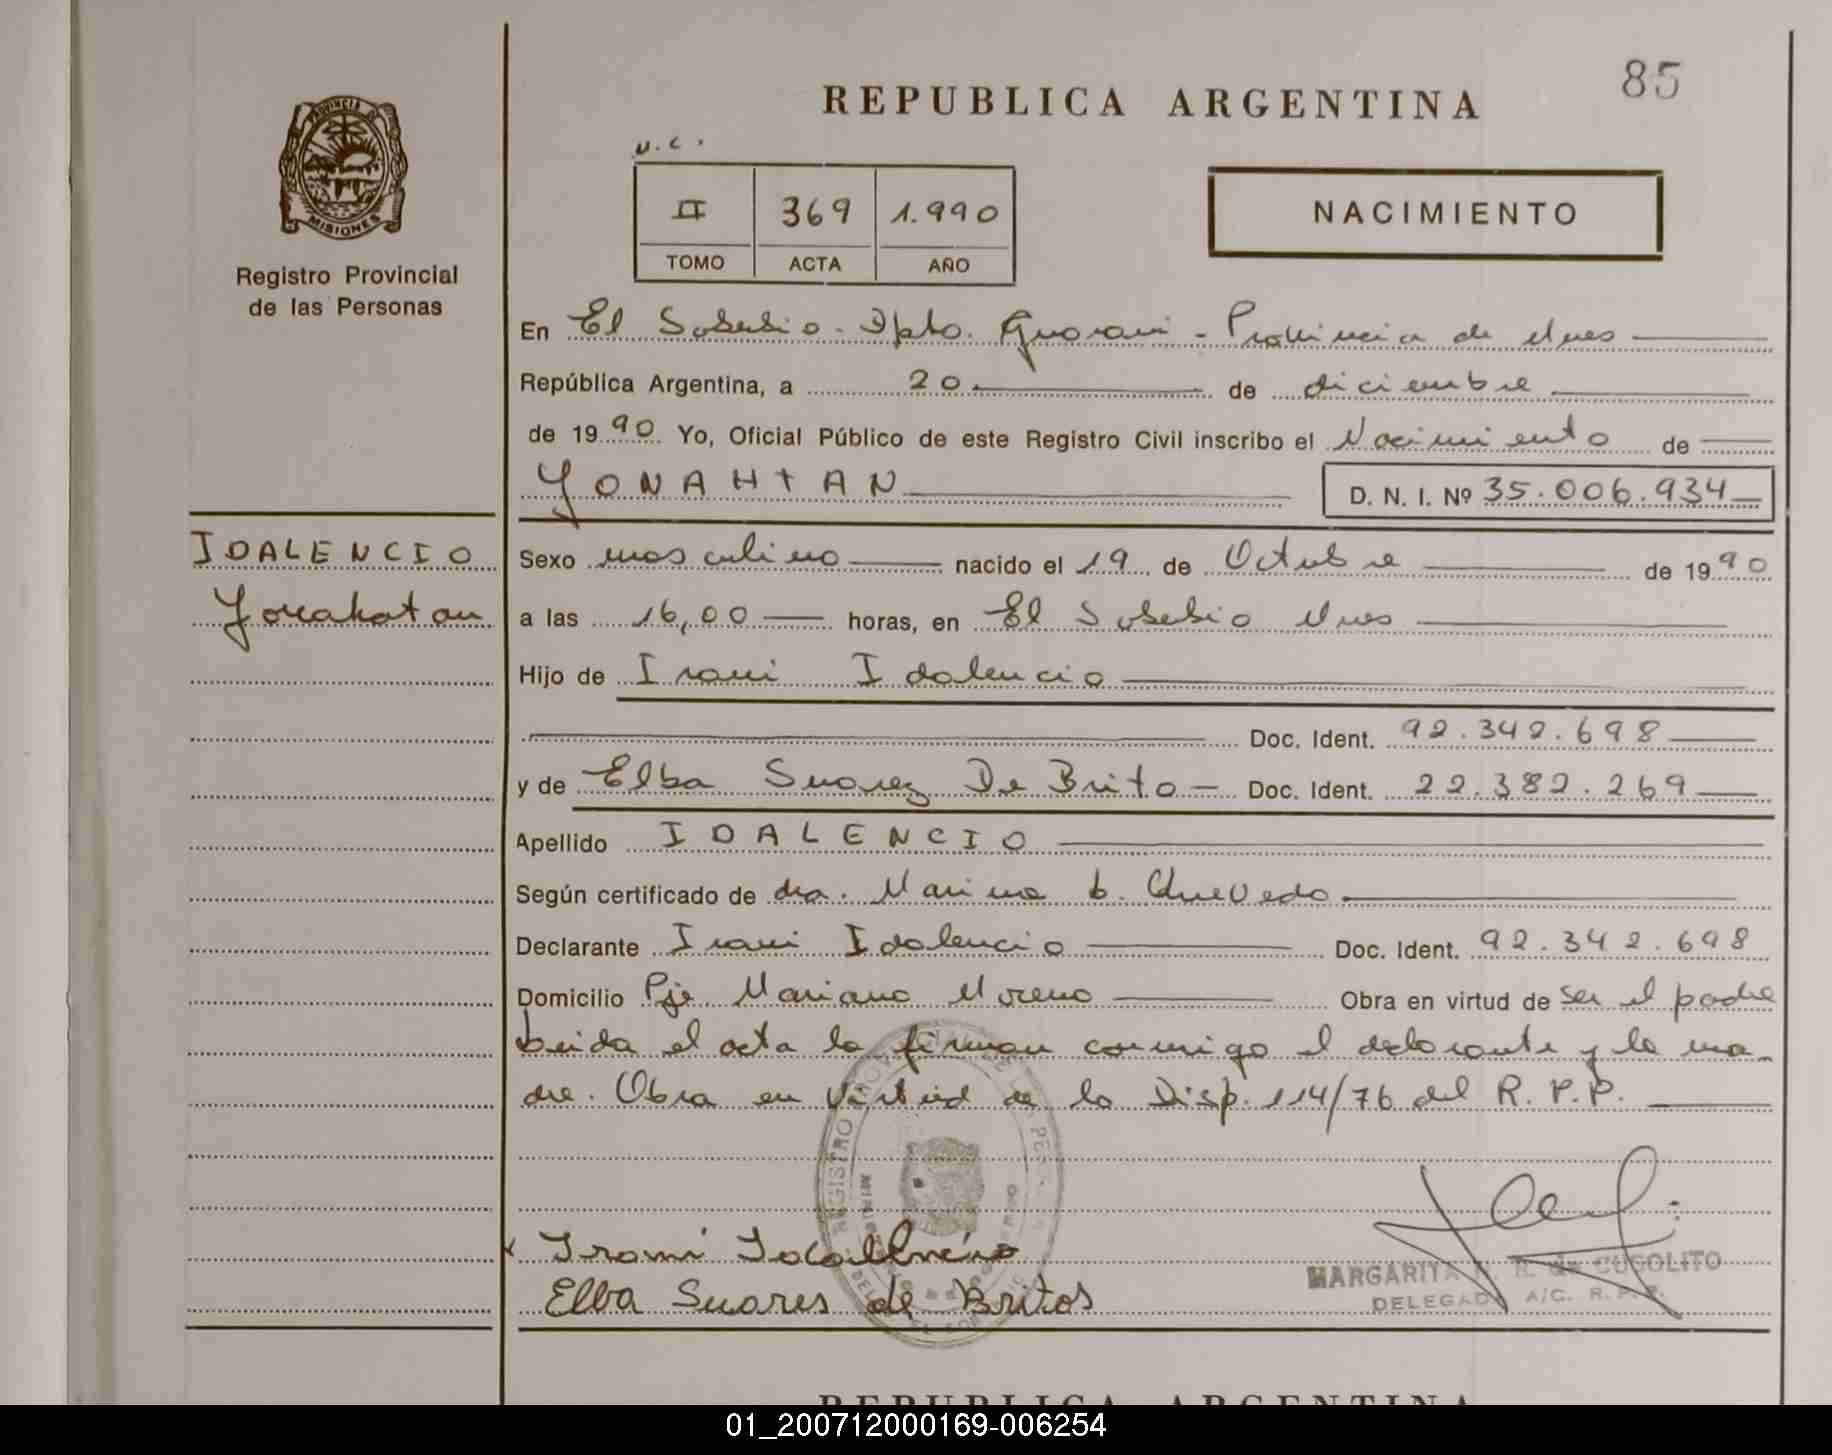 85
REPUBLICA ARGENTINA
N.C.
II 369 1.990
TOMO ACTA AÑO
NACIMIENTO
PROVINCIA DE
MISIONES
Registro Provincial
de las Personas
En El Soberbio - Dpto. Guarani - Provincia de Mnes
República Argentina, a 20 de diciembre
de 1990 Yo, Oficial Público de este Registro Civil inscribo el Nacimiento de
YONAHTAN D. N. I. Nº 35.006.934
IDALENCIO
Yonahatan
Sexo masculino nacido el 19 de Octubre de 1990
a las 16,00 horas, en El Soberbio Mnes
Hijo de Irani Idalencio
Doc. Ident. 92.342.698
y de Elba Suarez De Brito - Doc. Ident. 22.382.269
Apellido IDALENCIO
Según certificado de dra. Marina b. Quevedo
Declarante Irani Idalencio Doc. Ident. 92.342.698
Domicilio Pje. Mariano Moreno Obra en virtud de ser el padre
Leida el acta la firman conmigo el declarante y la ma-
dre. Obra en virtud de la Disp. 114/76 del R.P.P.
REGISTRO
Irami
Elba Suares de Britos
MARGARITA de CUSOLITO
DELEGADA A/C. R.P.P.
REPUBLICA ARGENTINA
01_200712000169-006254